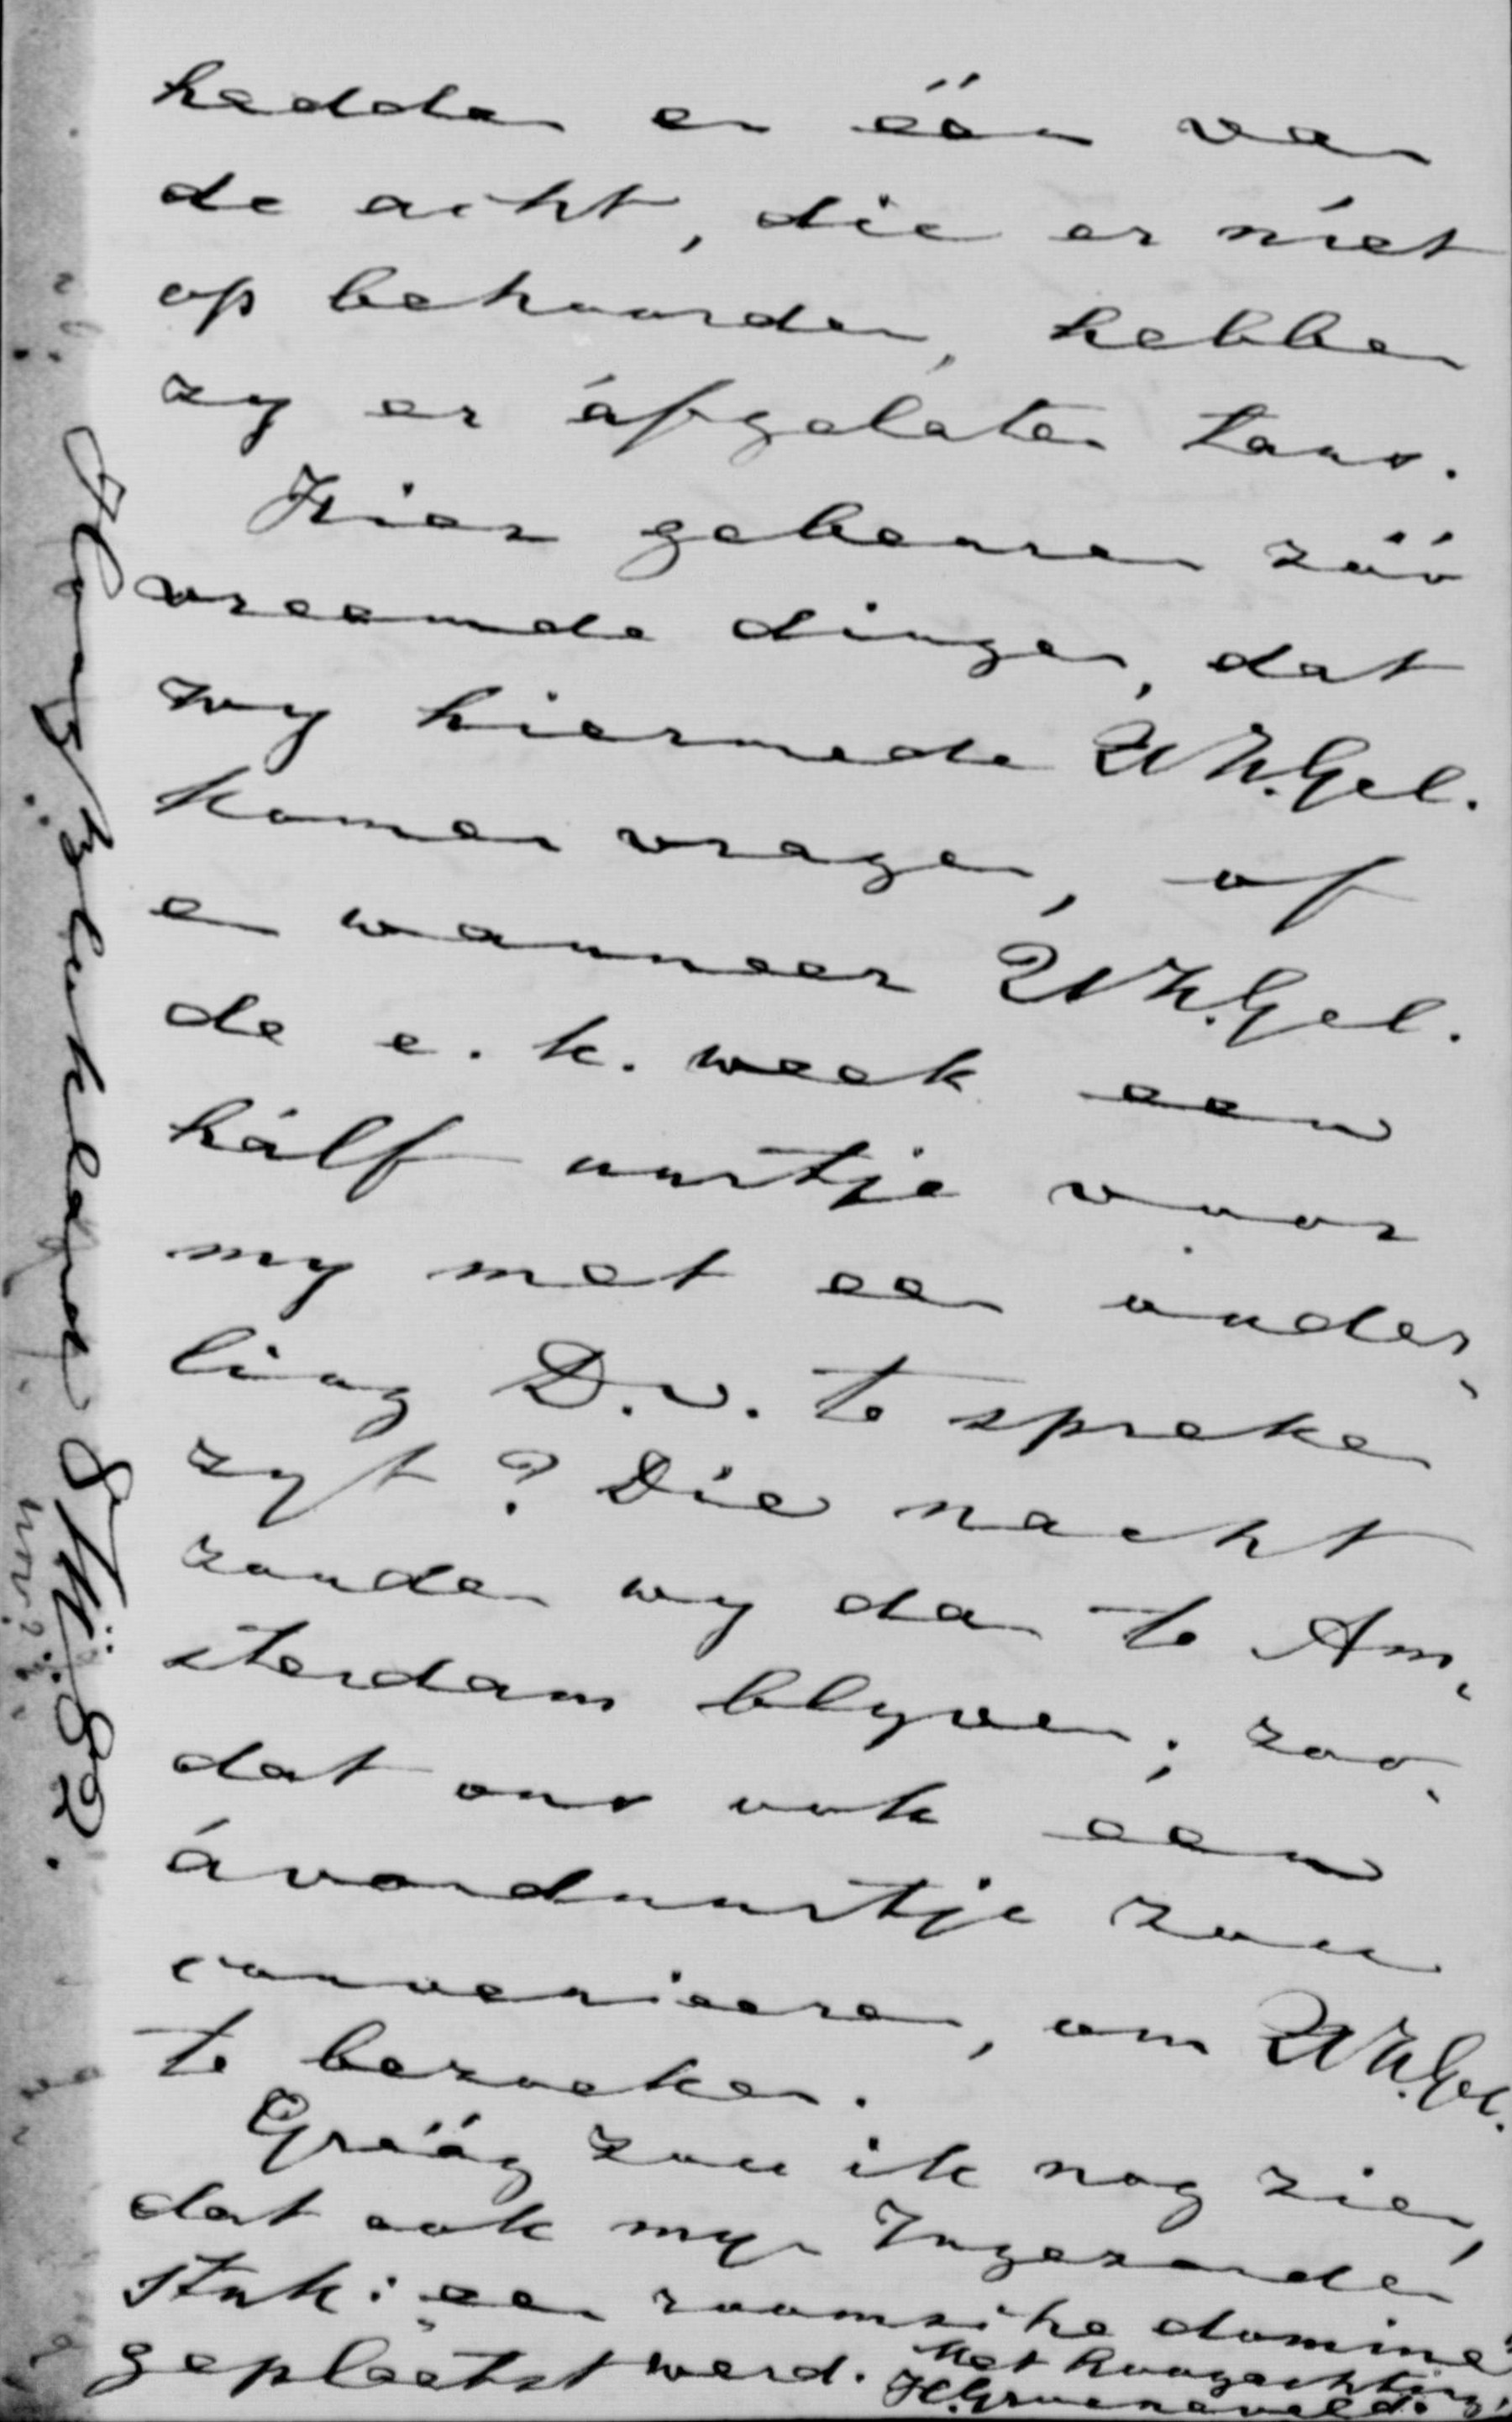 hadden en één van
de acht, die er niet
op behoorden, hebben
zy er áfgelaten thans.
Hier gebeuren zóó
vreemde dingen, dat
wy hiermede UWH.Gel.
komen vragen, of
en wanneer UWH.Gel.
de e. k. week een
hálf uurtje voor
my met een ouder-
ling D.v. te spreken
zyt? Die nacht
zouden wy dan te Am-
sterdam blyven; zoo-
dat ons ook een
ávonduurtje zou
convenieeren, om UWH.Gel.
te bezoeken.
Gráág zou ik nog zien,
dat ook myn Ingezonden
stuk: "een roomsche dominé"
geplaatst werd. Met hoogachting,
H. Groeneveld.